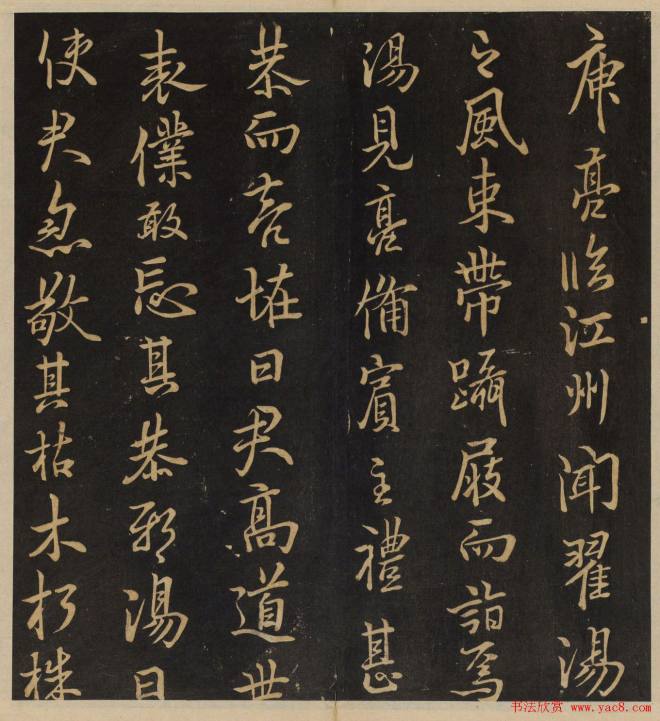 庾亮臨江州聞翟湯
之風束帶躡屐而詣焉
湯見亮備賓主禮甚
恭而曰君高道世
表僕敢忘其恭邪湯曰
使君忽敬其枯木朽株
书法欣赏 www.yac8.com